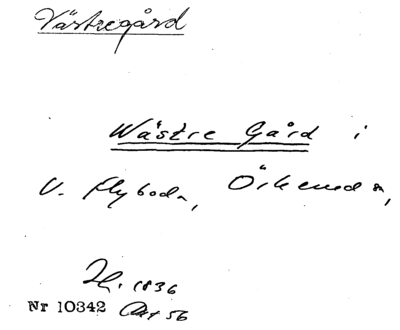 Västregård
Wästre Gård i
V. Flyboda, Örkened s,
H. 1836
Nr 10342 Akt 56